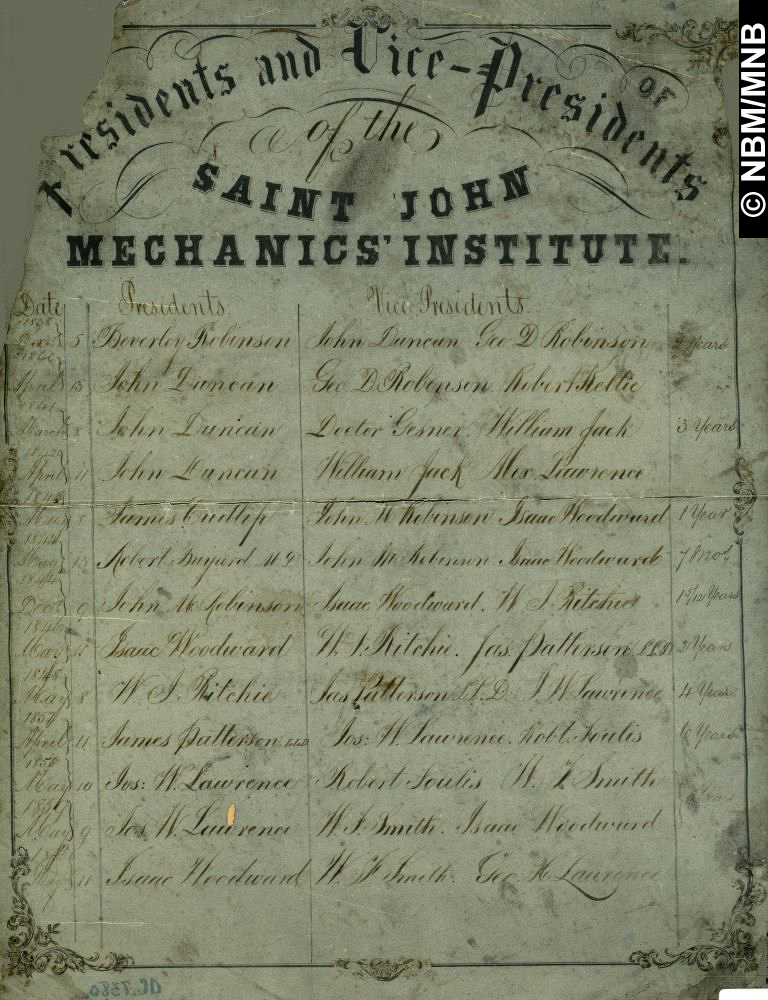 Presidents and Vice-Presidents
OF
of the
SAINT JOHN
MECHANICS' INSTITUTE.
Date Presidents. Vice Presidents.
1838
Decr 5 Beverley Robinson John Duncan Geo D Robinson 2 Years
1840
April 13 John Duncan Geo D Robinson. Robert Keltie
1841
March 8 John Duncan Doctor Gesner. William Jack 3 Years
1842
April 11 John Duncan William Jack Alex Lawrence
1843
May 8 James Cudlip John M Robinson Isaac Woodward 1 Year
1844
May 13 Robert Bayard M D John M Robinson Isaac Woodward 7 8 mos
1844
Decr 9 John M Robinson Isaac Woodward. W. J. Ritchie Years
1846
May Isaac Woodward W. J. Ritchie. Jas. Patterson LLD 2 Years
1848
May 8 W. J. Ritchie Jas Patterson L.L.D. J W Lawrence 4 Years
April 11 James Patterson LLD Jos: W. Lawrence. Robt. Foulis 6 Years
1858
May 10 Jos: W. Lawrence Robert Foulis W. F Smith
1859
May 9 Jos W. Lawrence W. F Smith. Isaac Woodward Years
May Isaac Woodward W. F Smith. Geo H Lawrence
© NBM/MNB